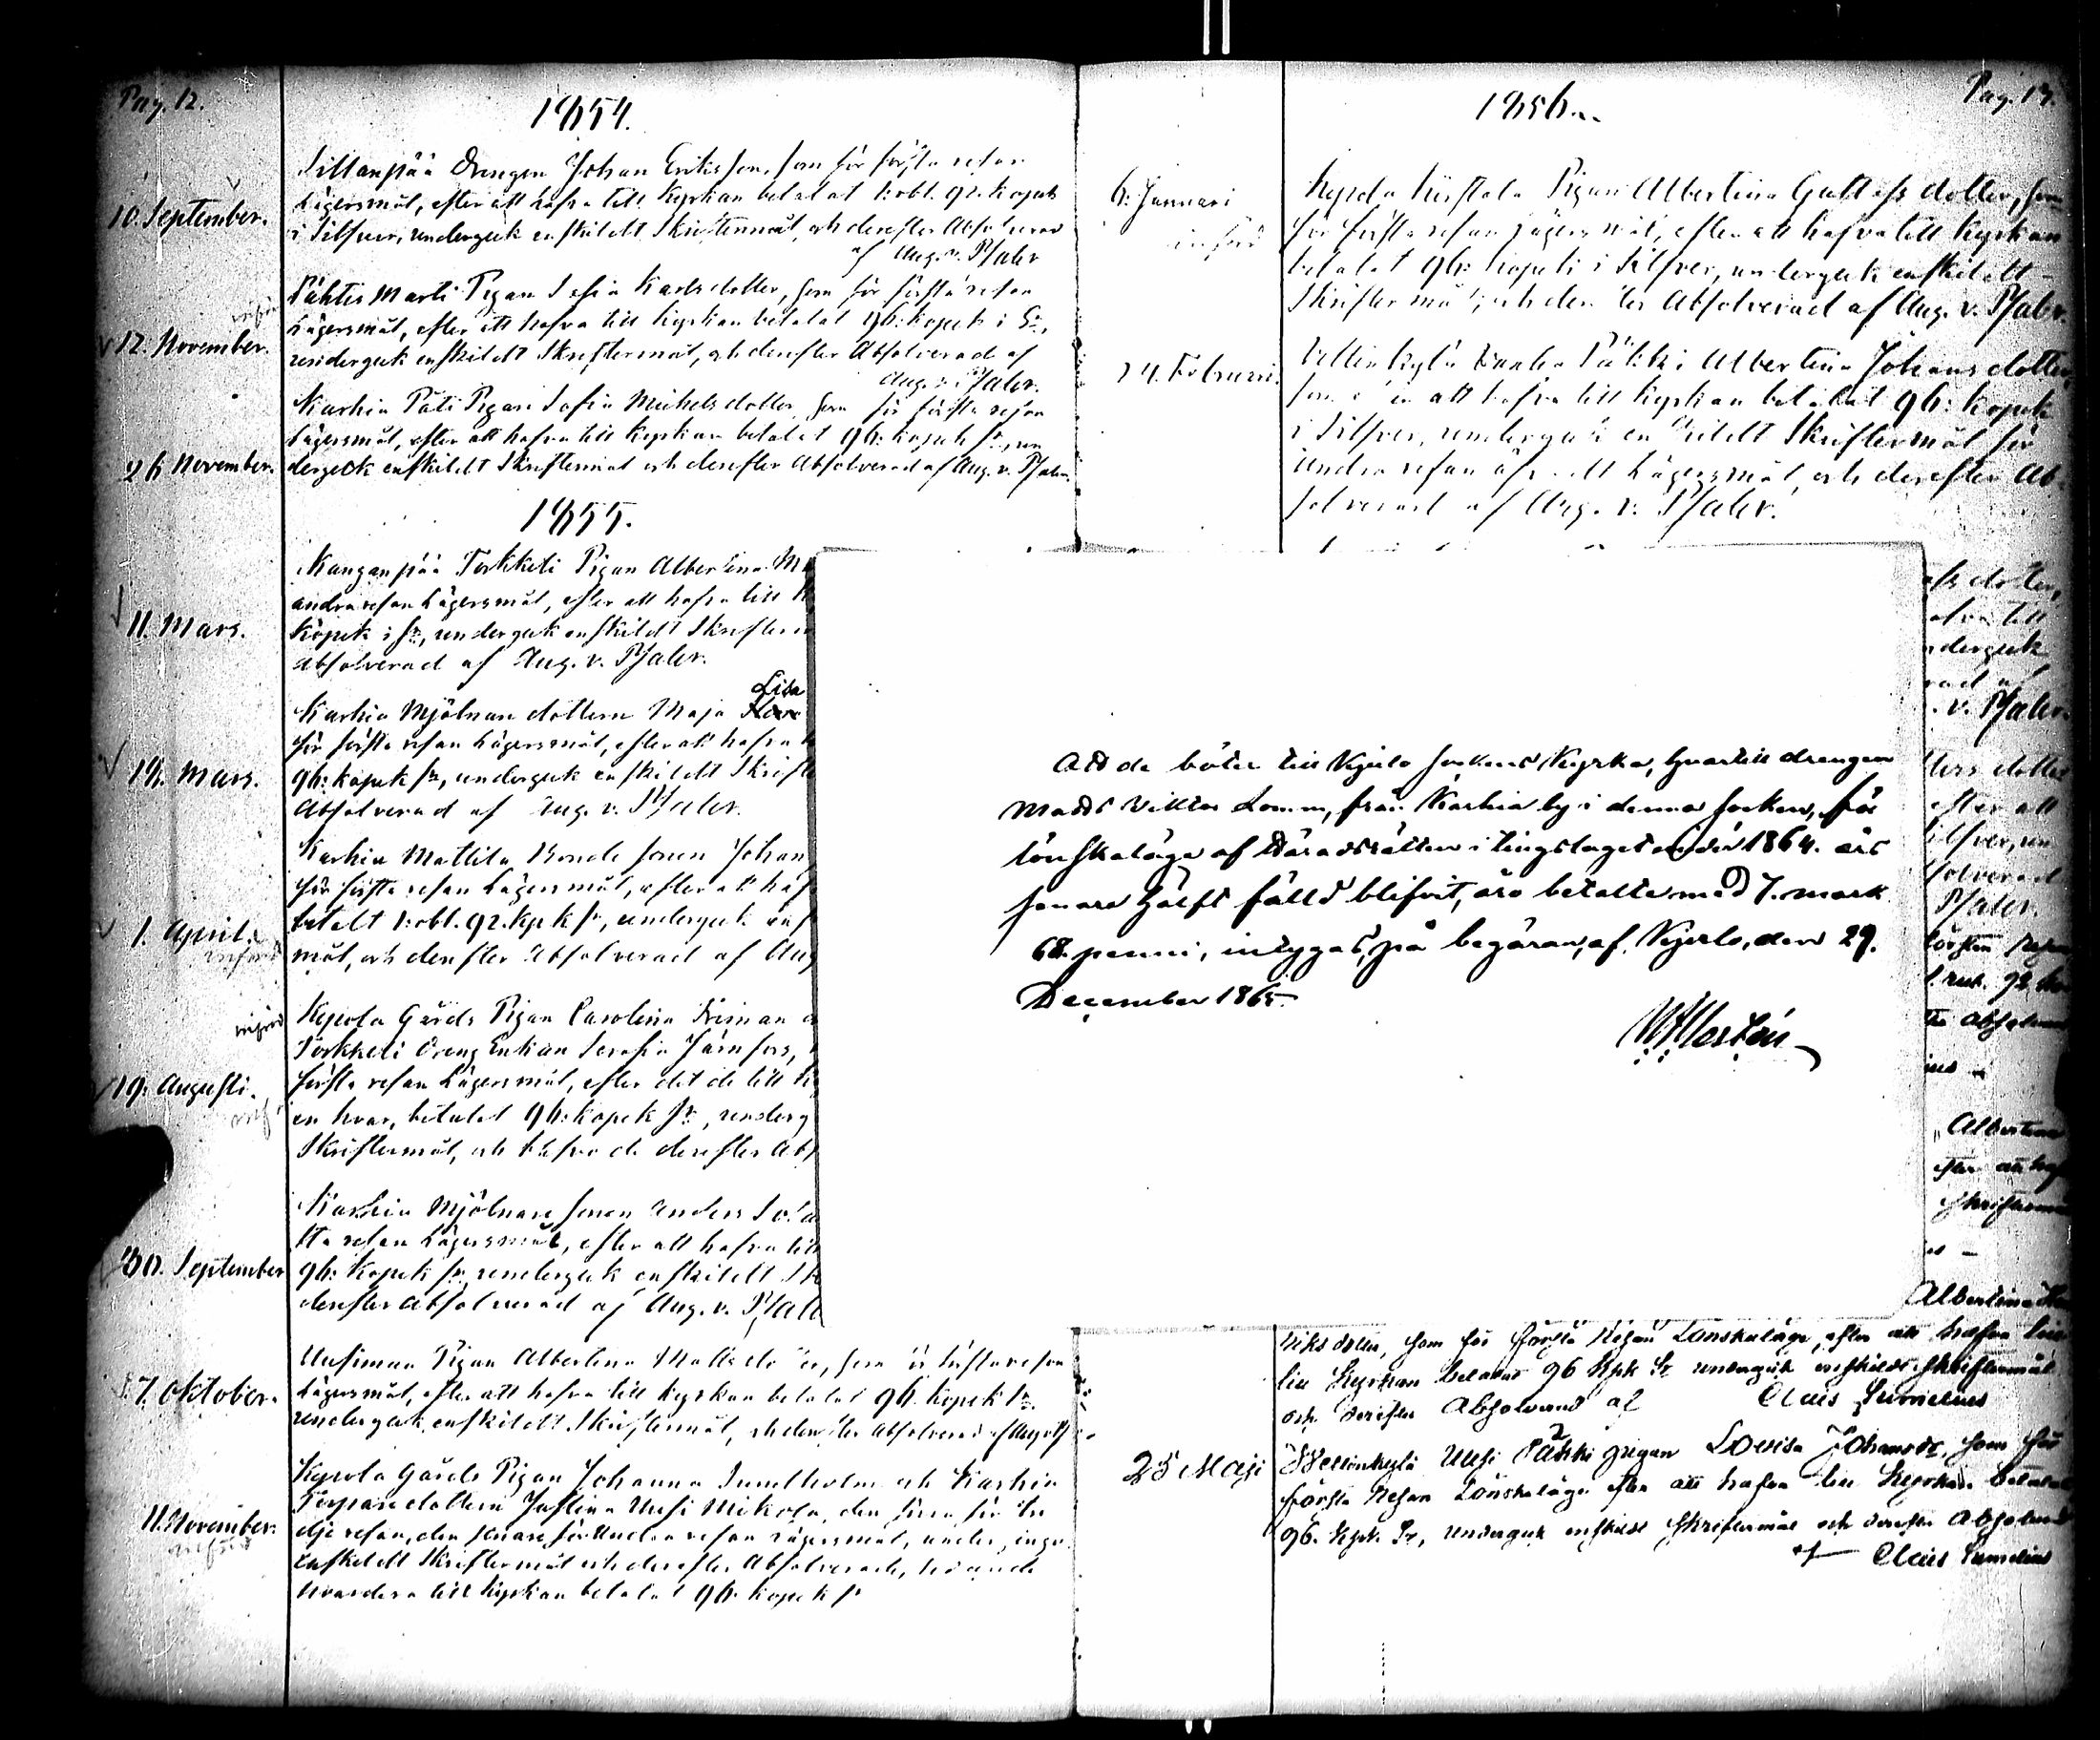 Pag. 12.
1854.
10. September.
Sillanpää Drengen Johan Eriksson, som för första resan
Lägersmål, efter att hafva till Kyrkan betalat 1: rbl. 92. Kopek
i Silfver, undergick enskildt Skriftermål, och derefter Absolverad
af Aug. v. Pfaler
införd
12. November.
Pähtis Marti Pigan Sofia Karlsdotter, som för första resan
Lägersmål, efter att hafva till Kyrkan betalat 96: kopek i Sr,
undergick enskildt Skriftermål, och derefter Absolverad af
Aug. v. Pfaler.
26 November.
Karhia Päti Pigan Sofia Michelsdotter, som för första resan
Lägersmål, efter att hafva till Kyrkan betalat 96: kopek Sr, un
dergick enskildt Skriftermål och derefter Absolverad af Aug. v. Pfaler.
1855.
11. Mars.
Kanganpää Torkkeli Pigan Albertina M
andra resan Lägersmål, efter att hafva till K
Kopek i Sr, undergick enskildt Skrifterm
absolverad af Aug. v. Pfaler.
18. Mars.
Lisa
Karhia Mjölnare dottern Maja
för första resan Lägersmål, efter att hafva
96: kopek Sr, undergick enskildt Skrift
Absolverad af Aug. v. Pfaler.
1. April.
införd
Karhia Mattila Bonde Sonen Johan
för första resan Lägersmål, efter att haf
betalt 1: rbl. 92. kpk Sr, undergick ens
mål, och derefter Absolverad af Aug
införd
19. Augusti.
Kepola Gårds Pigan Carolina Friman o
Torkkeli Dreng Enkan Serafia Järnfors,
första resan Lägersmål, efter det de till K
en hvar, betalat 96: kopek Sr, underg
Skriftermål, och blefvo de derefter Abs
30. September
Karhia Mjölnare Sonen Anders
sta resan Lägersmål, efter att hafva till
96: Kopek Sr, undergick enskildt Sk
derefter Absolverad af Aug. v. Pfale
7. Oktober.
Uusimaa Pigan Albertina Matts dotter, som för första resan
Lägersmål, efter att hafva till Kyrkan betalat 96. kopek Sr.
undergick enskildt Skriftermål, och derefter Absolverad af Aug v Pf
11. November.
införd
Kepola Gårds Pigan Johanna Sundholm och Karhia
Torpare dottern Justina Uusi Mikola, den förra för tre
dje resan, den senare för Andra resan Lägersmål, under,
enskildt Skriftermål och derefter Absolverade,
till Kyrkan betalat 96. kopek Sr
Pag. 13.
1856.
6: Januari
införd
Kepola Pigan Albertina Gustafs dotter, som
för första resan Lägersmål, efter att hafva till Kyrkan
betalat 96: Kopek i Silfver, undergick enskildt
Skriftermål, och derefter Absolverad af Aug. v. Pfaler.
24. Februari.
Vellinkylä Pähki Albertina Johansdotter
som efter att hafva till Kyrkan betalat 96: Kopek
i Silfver, undergick enskildt Skriftermål för
Andra resan öfvadt Lägersmål, och derefter Ab-
solverad af Aug. v. Pfaler.
Att de böter till Kjulo sockens Kyrka, hvartill drengen
Matts Viktor Lomm, från Karhia by i denna socken, för
lönskaläge af Häradsrätten i tingslaget under 1864. års
senare hälft fälld blifvit, äro betalte med 7. mark
68. penni, intygas, på begäran, af Kjulo, den 29.
December 1865.
afs dotter,
afva till
ndergick
rad af
. v. Pfaler.
ters dotter
efter att
Silfver, un
solverad
Pfaler.
första resan
1 rub. 92 ko
ter absolver
ius
Albertina
efter att haf
Skriftermå
Albertina
riks dotter, som för första Resan Lönskaläge, efter att hafva
till Kyrkan betalat 96 Kpk Sr undergick enskildt skriftermål
och derefter Absolverad af Claës Sumelius
25 Maji
Wellinkylä Uusi Päkki pigan Lovisa Johansdr, som för
första Resan Lönskaläge efter att hafva till Kyrkan betalat
96. Kpk Sr, undergick enskildt skriftermål och derefter Absolverad
af Claës Sumelius